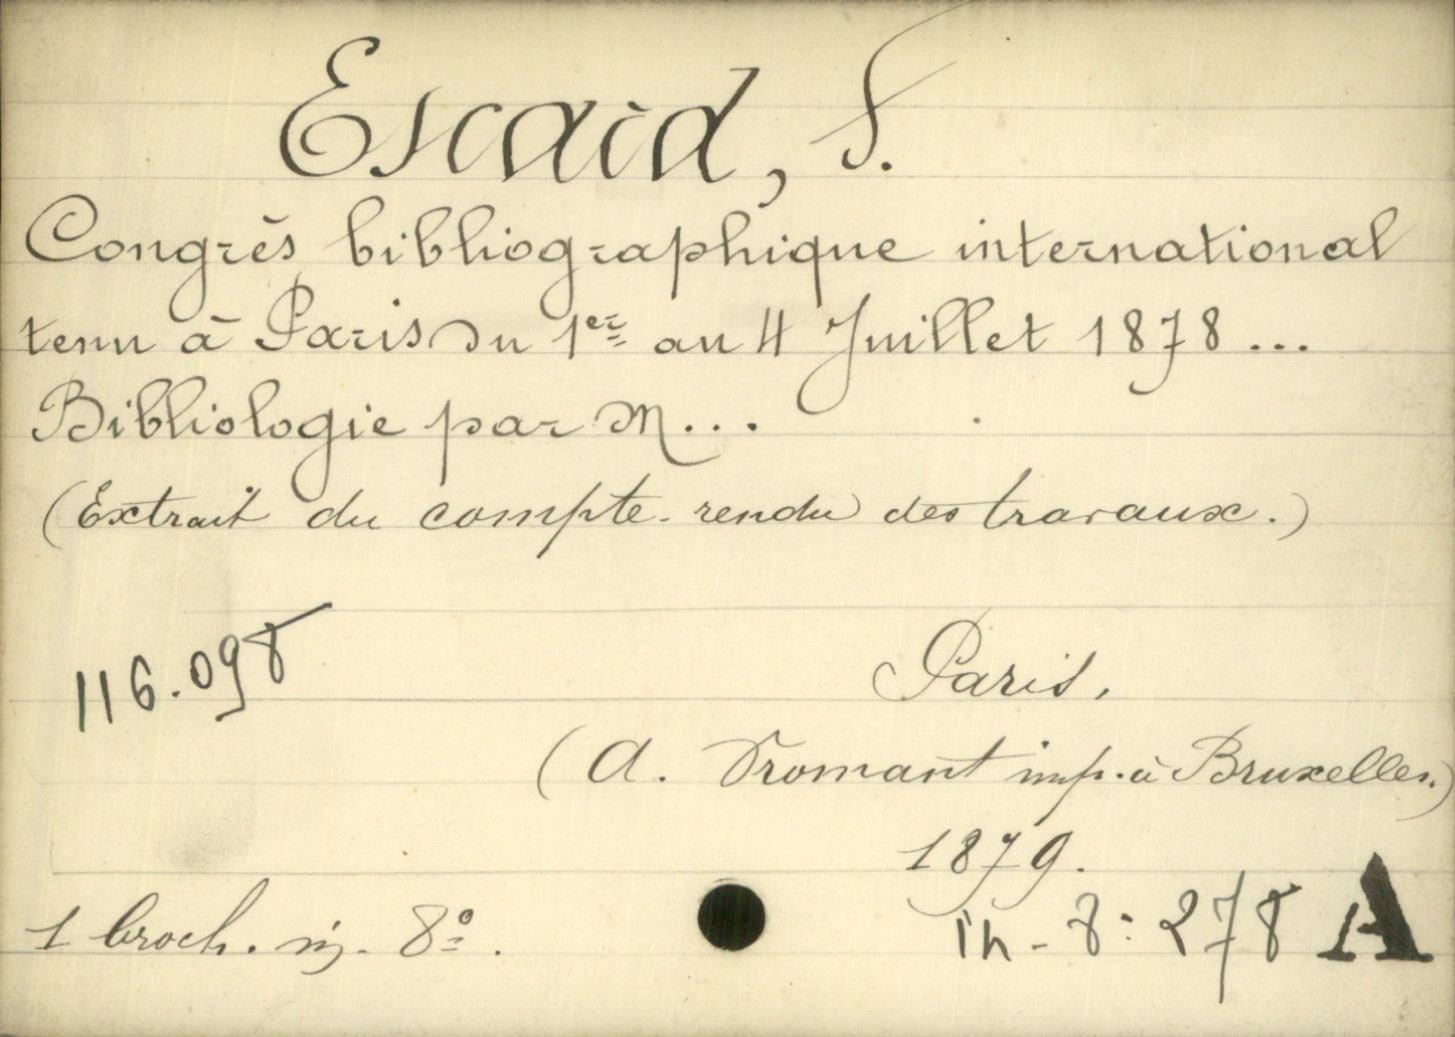 Escaid, F.
Congrès bibliographique international
tenu à Paris du 1er au 4 Juillet 1878 ...
Bibliologie par M...
(Extrait du compte-rendu des travaux.)
116.098
Paris,
(A. Vromant imp. à Bruxelles.)
1879.
1 broch. in- 8°.
in - 8: 278 A